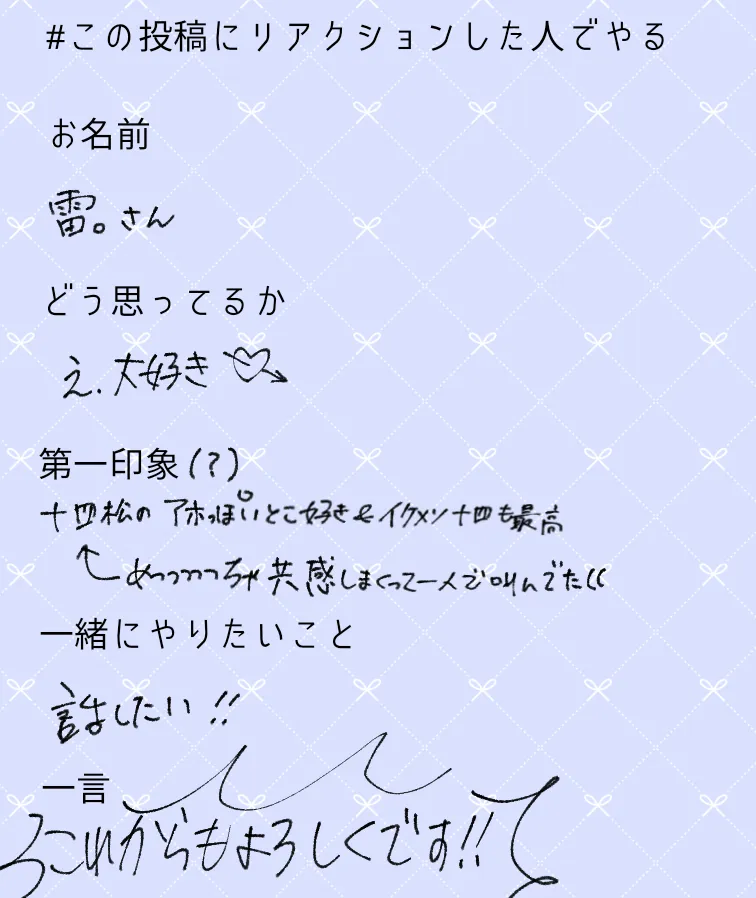 #この投稿にリアクションした人でやる
お名前
雷。さん
どう思ってるか
え、大好き
第一印象(?)
十四松のアホっぽいとこ好き&イケメン十四も最高
めっっっっちゃ共感しまくって一人で叫んでた((
一緒にやりたいこと
話したい!!
一言
これからもよろしくです!!